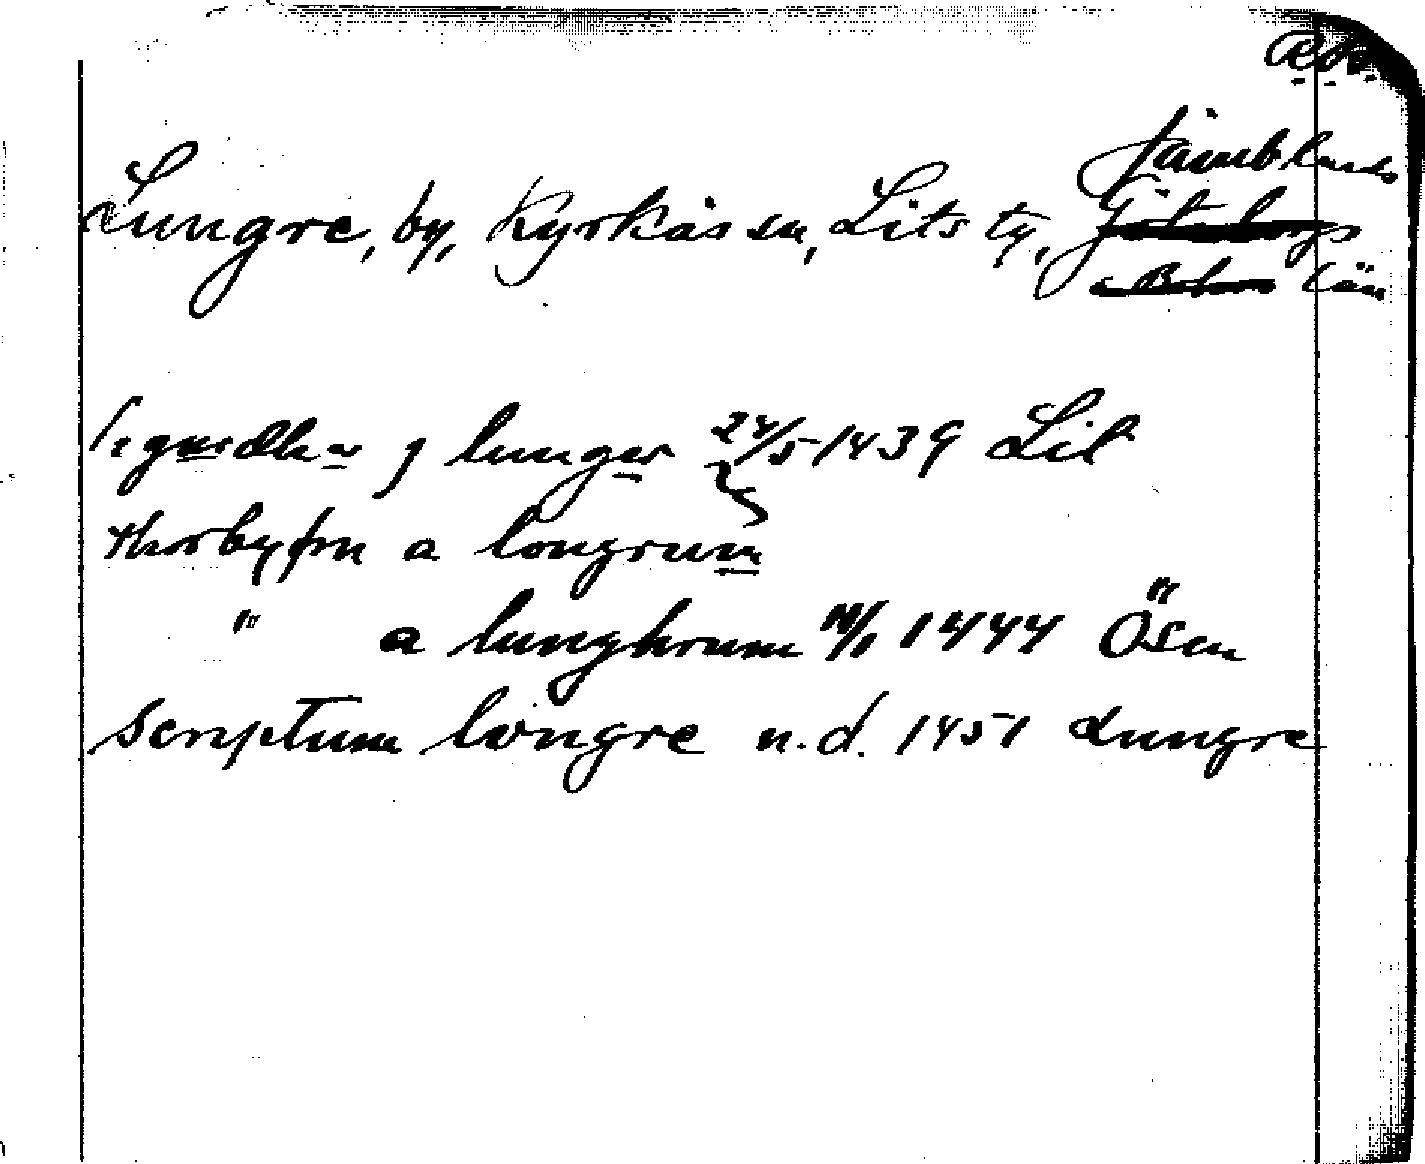 Jämtlands
Lungre, by, Kyrkås sn, Lits tg, Göteborgs
o Bohus län
j lunger 24/5 1439 Lit
thorbyørn a longrum
" a lunghrum 14/1 1444 Ösen
scriptum longre n.d. 1451 Lungre